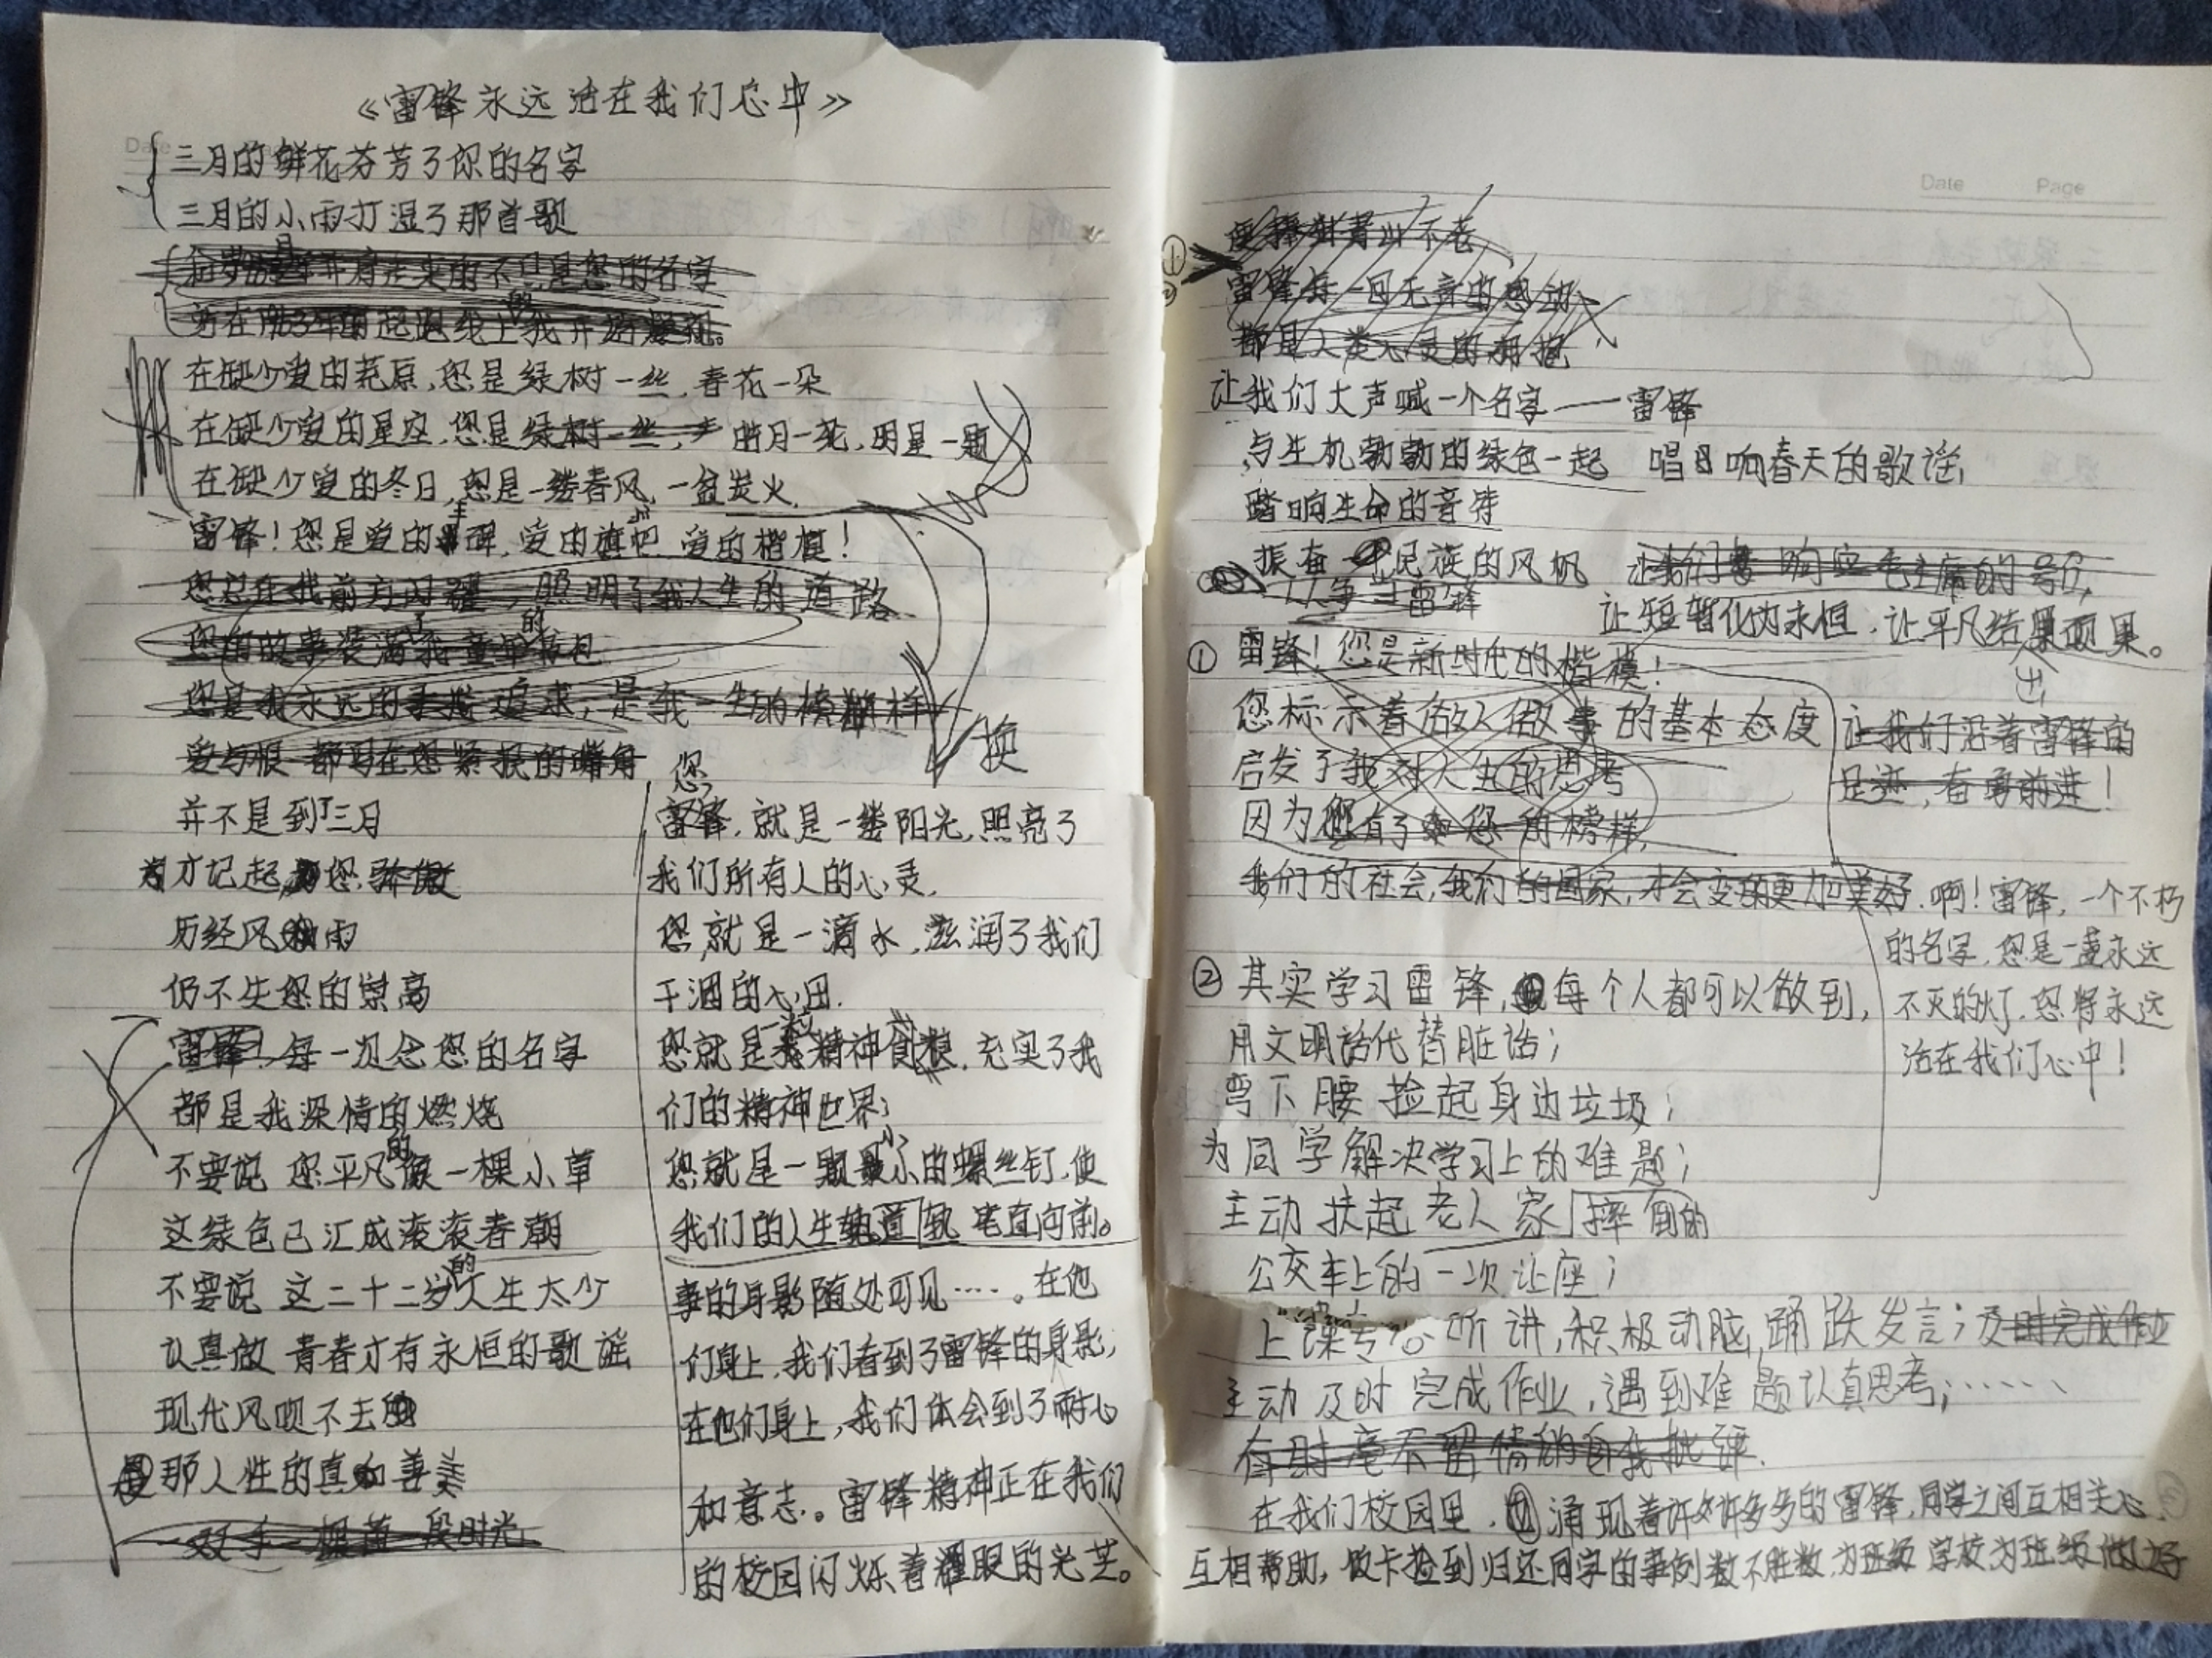 《雷锋永远活在我们心中》
三月的鲜花芬芳了你的名字
三月的小雨打湿了那首歌
在缺少爱的荒原,您是绿树一丝,春花一朵
在缺少爱的星空,您是绿树一丝, 皓月一轮,明星一颗
在缺少爱的冬日,您是一缕春风,一盆炭火.
雷锋!您是爱的丰碑,爱的旗帜 爱的楷模!
您总在我前方闪耀,照明了我人生的道路
您的故事装满了我童年的书包
您是我永远的追求,是我一生的榜样
爱与恨 都写在您紧抿的嘴角
换
并不是到了三月
才记起您
历经风雨
仍不失您的崇高
雷锋!每一次念您的名字
都是我深情的燃烧
不要说 您平凡的像一棵小草
这绿色已汇成滚滚春潮
不要说 这二十二岁的人生太少
认真做 青春才有永恒的歌谣
现代风吹不去
那人性的真和善美
您,
雷锋,就是一缕阳光,照亮了
我们所有人的心灵.
您,就是一滴水,滋润了我们
干涸的心田.
您就是一袋精神食粮,充实了我
们的精神世界;
您就是一颗最小小的螺丝钉,使
我们的人生轨道 笔直向前。
事的身影随处可见……。在他
们身上,我们看到了雷锋的身影,
在他们身上,我们体会到了耐心
和意志。雷锋精神正在我们
的校园闪烁着耀眼的光芒。
Date Page
雷锋每一回无言的感动
都是人类心灵的拥抱
让我们大声喊一个名字——雷锋
与生机勃勃的绿色一起 唱响春天的歌谣,
踏响生命的音符
振奋民族的风帆 让我们响应毛主席的号召,
人人争当雷锋 让短暂化为永恒,让平凡结出硕果。
① 雷锋!您是新时代的楷模!
您标示着做人做事的基本态度
启发了我对人生的思考
因为有了您的榜样,
我们的社会,我们的国家,才会变得更加美好.
让我们沿着雷锋的
足迹,奋勇前进!
啊!雷锋,一个不朽
的名字,您是一盏永远
不灭的灯,您将永远
活在我们心中!
② 其实学习雷锋,每个人都可以做到,
用文明话代替脏话;
弯下腰 捡起身边垃圾;
为同学解决学习上的难题;
主动扶起老人家摔倒的
公交车上的一次让座;
上课专心听讲,积极动脑,踊跃发言;及时完成作业
主动及时完成作业,遇到难题认真思考;……
有时毫不留情的自我批评.
在我们校园里,涌现着许许多多的雷锋,同学之间互相关心,
互相帮助,饭卡捡到归还同学的事例数不胜数,为班级 学校为班级做好